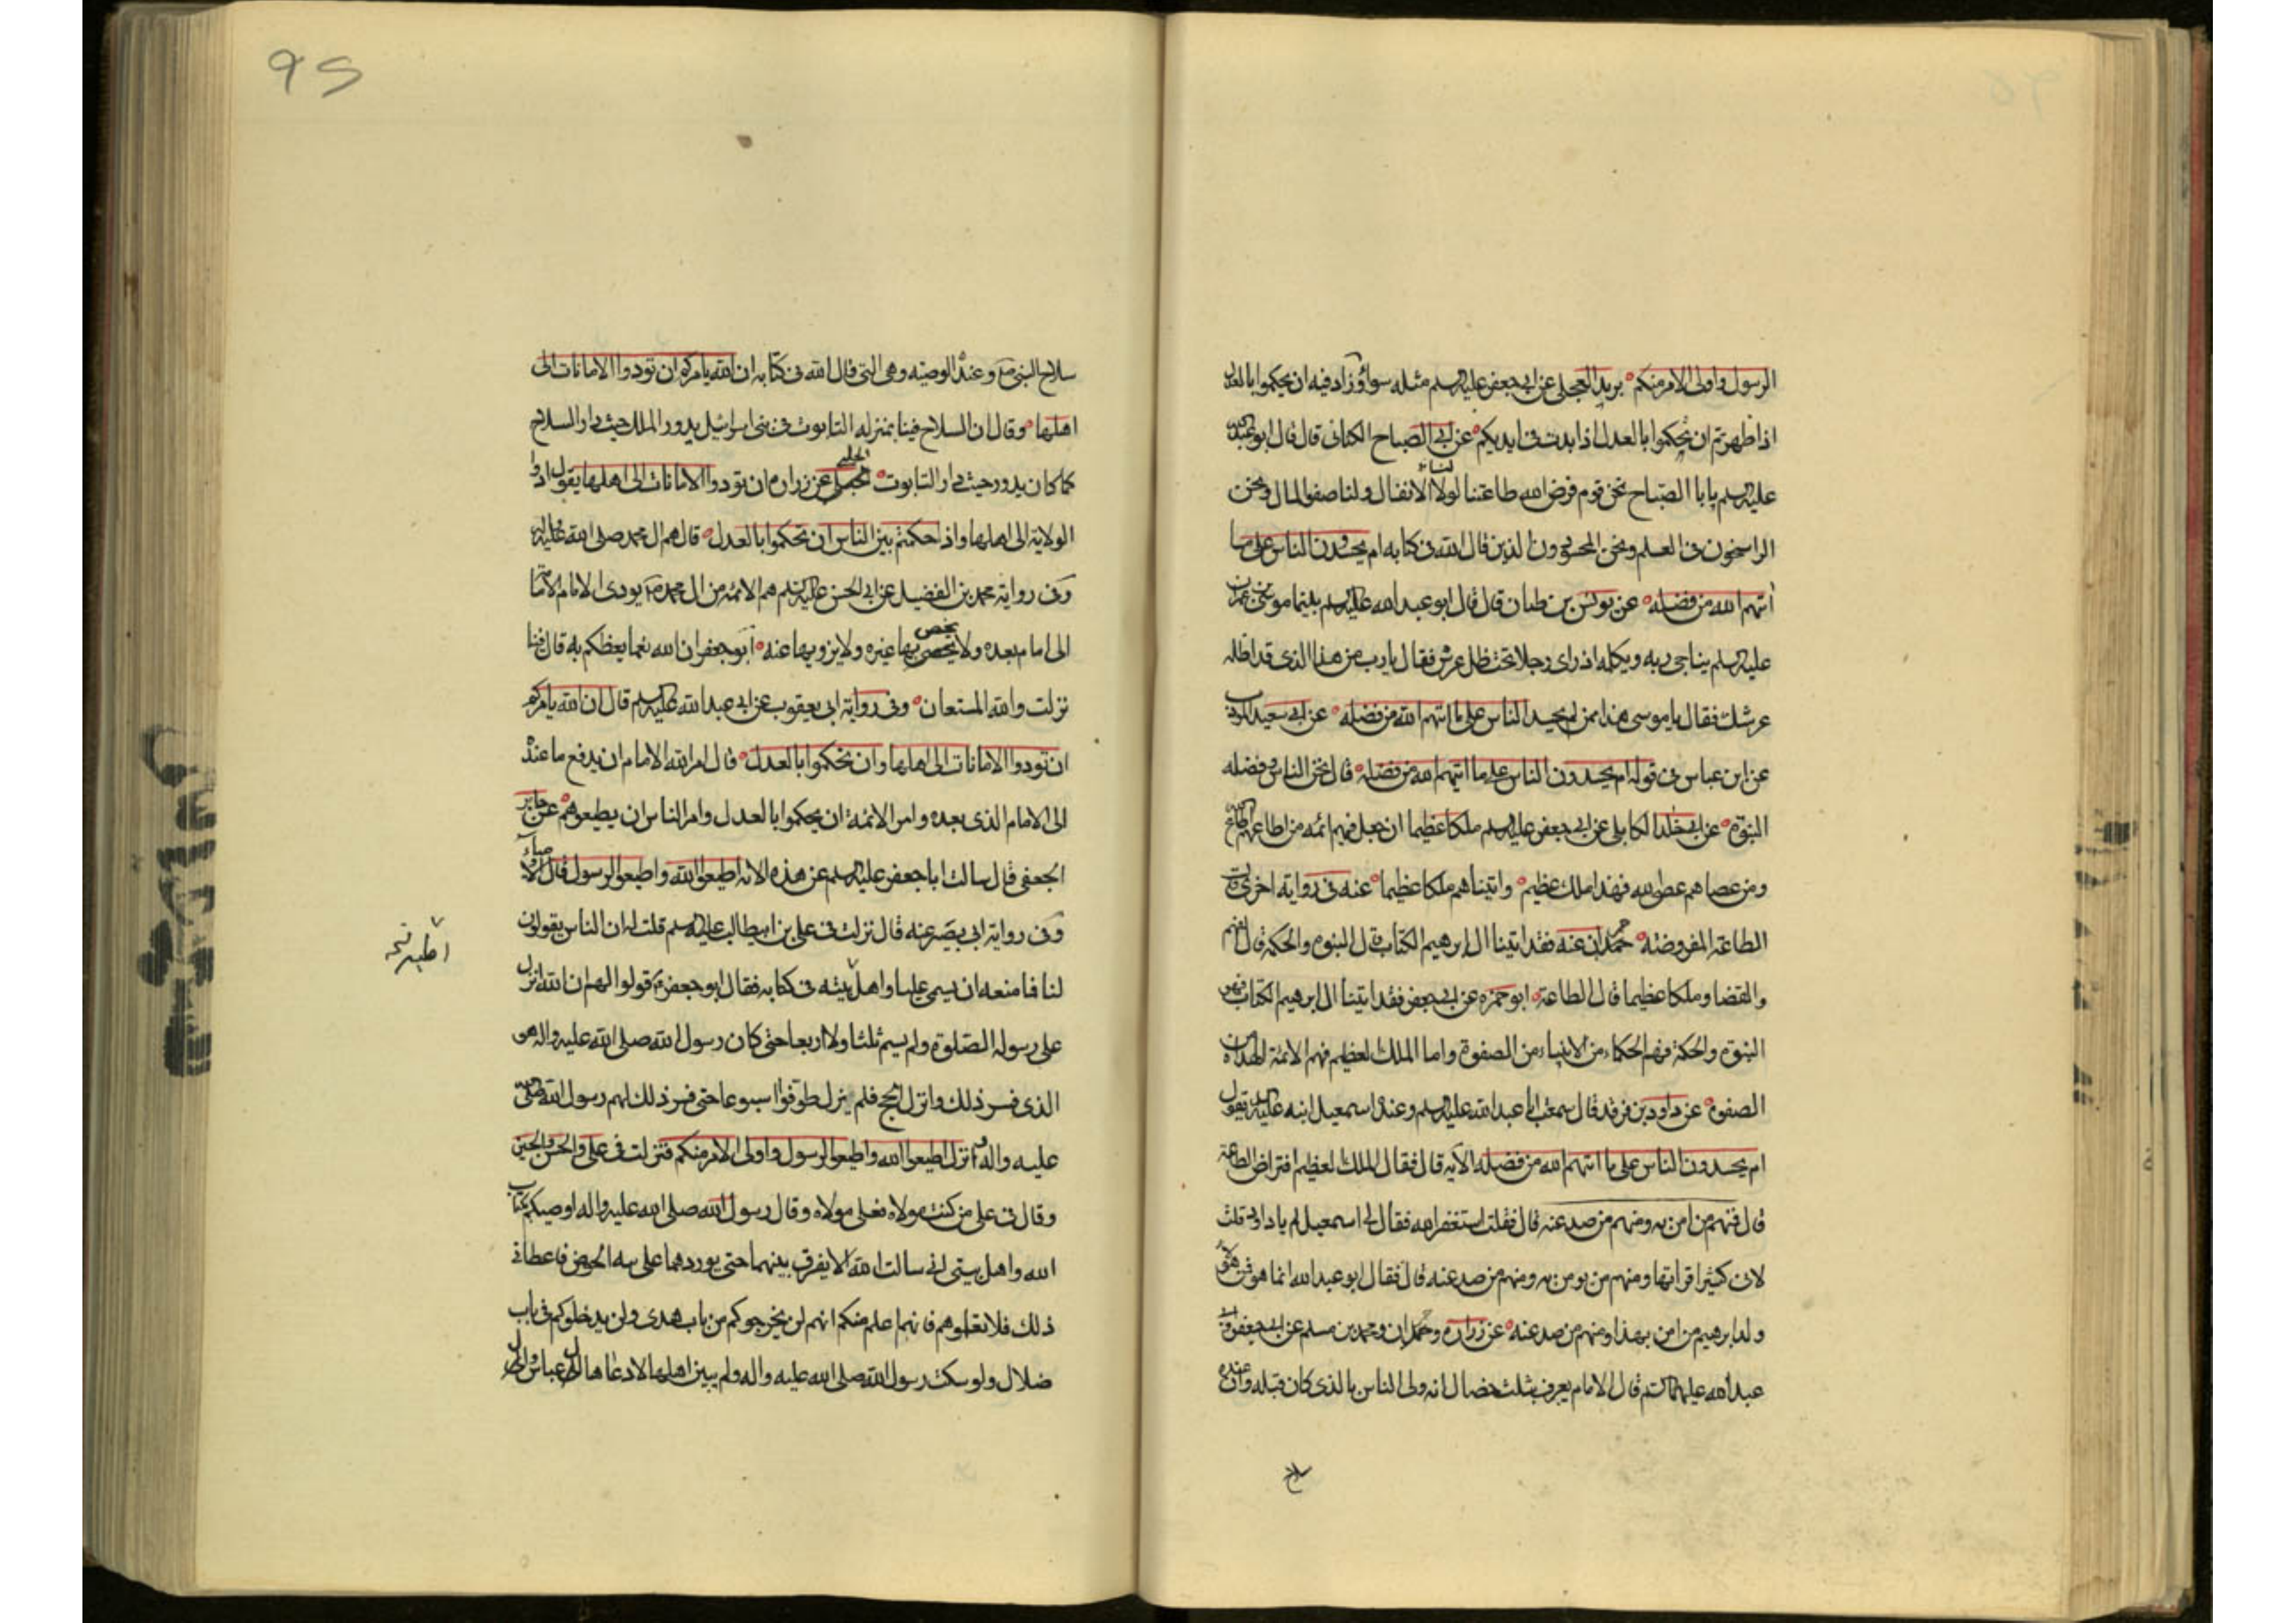 الرسول واولى الامر منكم بريد العجلى عن ابى جعفر عليه السلم مثله سواء وزاد فيه ان تحكموا بالعدل
اذا ظهرتم ان تحكموا بالعدل اذا بدت فى ايديكم عن ابى الصباح الكنانى قال قال ابو عبدالله
عليه السلم يابا الصباح نحن قوم فرض الله طاعتنا لنا الانفال ولنا صفو المال ونحن
الراسخون فى العلم ونحن المحسودون الذين قال الله فى كتابه ام يحسدون الناس على ما
اتيهم الله من فضله عن يونس بن ظبيان قال قال ابو عبد الله عليه السلم بينما موسى بن عمران
عليه السلم يناجى ربه ويكلمه اذ راى رجلا تحت ظل عرش فقال يارب من هذا الذى قد اظله
عرشك فقال ياموسى هذا ممن لم يحسد الناس على ما اتيهم الله من فضله عن ابى سعيد المودب
عن ابن عباس فى قوله ام يحسدون الناس على ما اتيهم الله من فضله قال نحن الناس وفضله
النبوة عن ابى خالد الكابلى عن ابى جعفر عليه السلم ملكا عظيما ان جعل فيهم ائمه من اطاعهم اطاع الله
ومن عصاهم عصى الله فهذا ملك عظيم واتيناهم ملكا عظيما عنه فى رواية اخرى قال
الطاعة المفروضة حمران عنه فقد اتينا ال ابرهيم الكتاب قال النبوة والحكمة قال الفهم
والقضا وملكا عظيما قال الطاعة ابو حمزه عن ابى جعفر فقد اتينا ال ابرهيم الكتاب فهو
النبوة والحكمة فهم الحكماء من الانبياء من الصفوة واما الملك العظيم فهم الائمة الهداة من
الصفوة عن داود بن فرقد قال سمعت ابا عبد الله عليه السلم وعنده اسمعيل ابنه عليه السلم يقول
ام يحسدون الناس على ما اتيهم الله من فضله الآية قال فقال الملك العظيم افتراض الطاعة
قال فمنهم من امن به ومنهم من صد عنه قال فقلت استغفر الله فقال لى اسمعيل لم يا داود قلت
لانى كثيرا قراتها ومنهم من يومن به ومنهم من صد عنه قال فقال ابو عبد الله انما هو فمن هؤلاء
ولد ابرهيم من امن بهذا ومنهم من صد عنه عن زرارة وحمران ومحمد بن مسلم عن ابى جعفر وابى
عبد الله عليهما السلم قال الامام يعرف بثلث خصال انه ولى الناس بالذى كان قبله وان عنده
سلاح
95
سلاح النبى ص وعنده الوصيه وهى التى قال الله فى كتابه ان الله يامركم ان تودوا الامانات الى
اهلها وقال ان السلاح فينا بمنزله التابوت فى بنى اسرائيل يدور الملك حيث دار السلاح
كما كان يدور حيث دار التابوت الحلبى عن زراره ان تودوا الامانات الى اهلها يقول ادوا
الولاية الى اهلها واذا حكمتم بين الناس ان تحكموا بالعدل قال هم ال محمد صلى الله عليه واله
وفى رواية محمد بن الفضيل عن ابى الحسن عليه السلم هم الائمه من ال محمد ص يودى الامام الامامة
الى امام بعده ولا يخص بها غيره ولا يزويها عنه ابو جعفر ان الله نعما يعظكم به قال فينا
نزلت والله المستعان وفى رواية ابى يعقوب عن ابى عبد الله عليه السلم قال ان الله يامركم
ان تودوا الامانات الى اهلها وان تحكموا بالعدل قال امر الله الامام ان يدفع ما عنده
الى الامام الذى بعده وامر الائمة ان يحكموا بالعدل وامر الناس ان يطيعوهم عن جابر
الجعفى قال سالت ابا جعفر عليه السلم عن هذه الاية اطيعوا الله واطيعوا الرسول قال الاوصياء
وفى رواية ابى بصير عنه قال نزلت فى على بن ابيطالب عليه السلم قلت له ان الناس يقولون
لنا فما منعه ان يسمى عليا واهل بيته فى كتابه فقال ابو جعفر ع قولوا لهم ان الله انزل
على رسوله الصلوة ولم يسم ثلثا ولا اربعا حتى كان رسول الله صلى الله عليه واله هو
الذى فسر ذلك وانزل الحج فلم ينزل طوفوا اسبوعا حتى فسر ذلك لهم رسول الله صلى الله
عليه واله وانزل اطيعوا الله واطيعوا الرسول واولى الامر منكم فنزلت فى على والحسن والحسين
وقال فى على من كنت مولاه فعلى مولاه وقال رسول الله صلى الله عليه واله اوصيكم بكتاب
الله واهل بيتى انى سالت الله الا يفرق بينهما حتى يوردهما على الحوض فاعطانى
ذلك فلا تعلموهم فانهم اعلم منكم انهم لن يخرجوكم من باب هدى ولن يدخلوكم فى باب
ضلال ولو سكت رسول الله صلى الله عليه واله ولم يبين اهلها لادعاها ال عباس وال